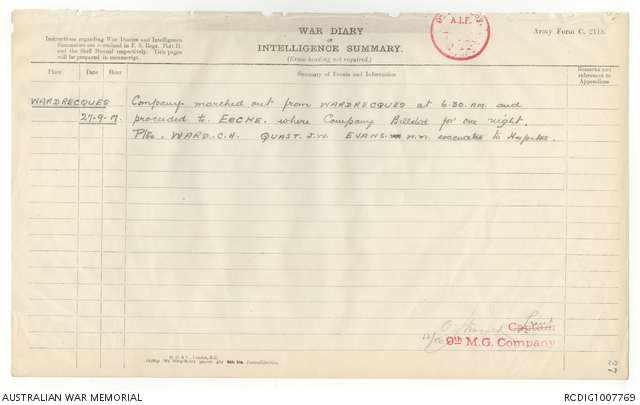 Instructions regarding War Diaries and Intelligence
Summaries are contained in F. S. Regs., Part II.
and the Staff Manual respectively. Title pages
will be prepared in manuscript.
WAR DIARY
or
INTELLIGENCE SUMMARY.
(Erase heading not required.)
A.I.F.
Army Form C. 2118.
Place Date Hour Summary of Events and Information Remarks and references to Appendices
WARDRECQUES Company marched out from WARDRECQUES at 6.30 AM and
27-9-17 proceeded to EECKE. where Company Billeted for one night.
Ptes. WARD. C.H. QUAST. J.W. EVANS. evacuated to Hospital.
Lieut
Captain
9th M.G. Company
27
AUSTRALIAN WAR MEMORIAL
RCDIG1007769